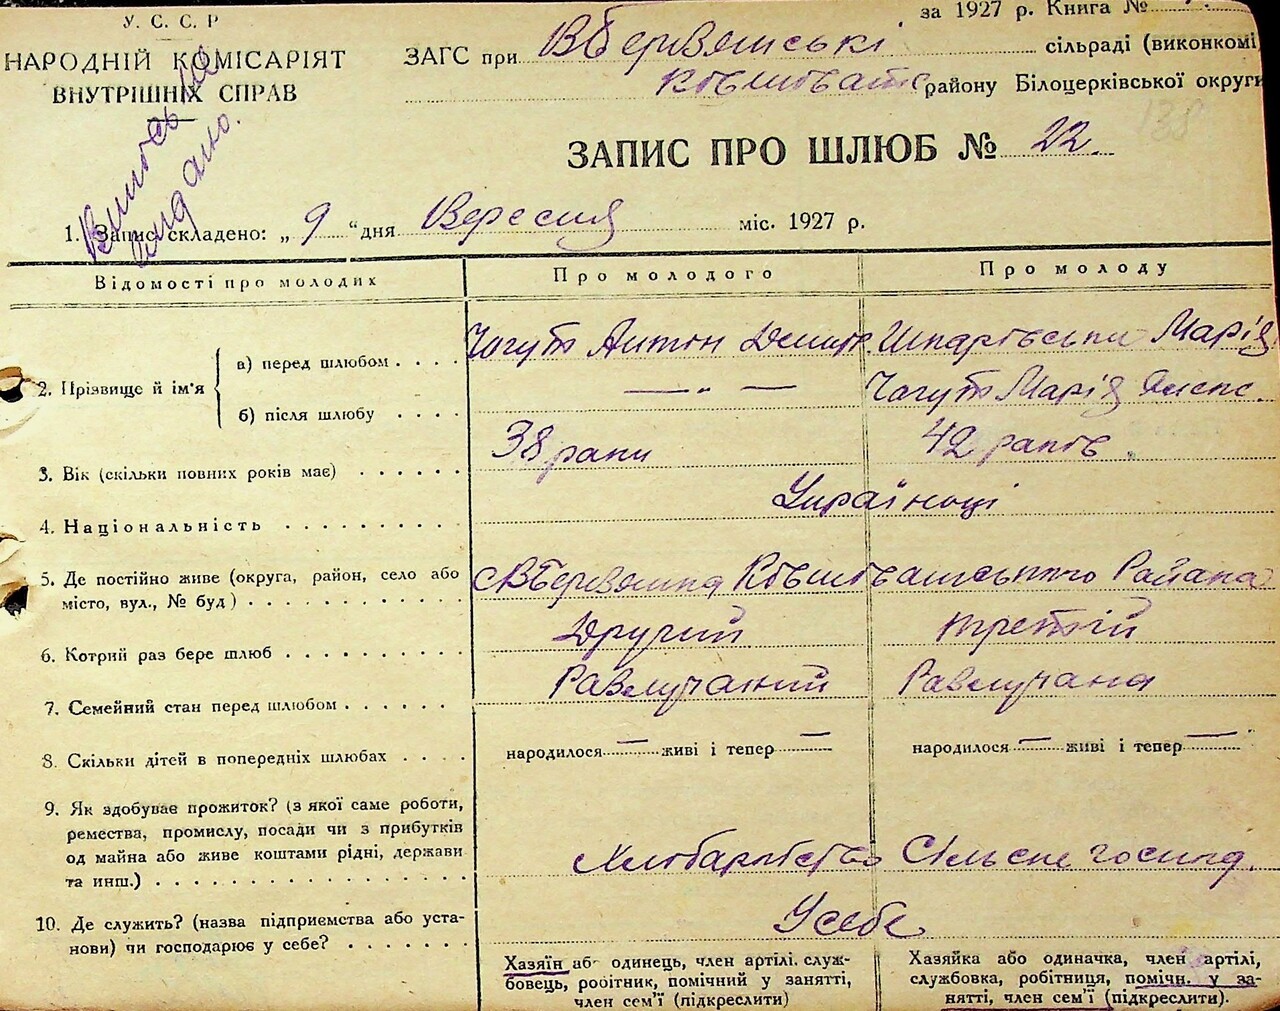 У. С. С. Р
НАРОДНІЙ КОМІСАРІЯТ
ВНУТРІШНІХ СПРАВ
за 1927 р. Книга №
ЗАГС при В Березянські сільраді (виконкомі
району Білоцерківської округи
138
ЗАПИС ПРО ШЛЮБ № 22.
Видано.
1. Запис складено: „ 9 “ дня Вересня міс. 1927 р.
Відомості про молодих Про молодого Про молоду
2. Прізвище й ім'я
а) перед шлюбом . . . . Чогут Антін Демит. Шпарівська Марія
б) після шлюбу . . . . — „ — Чогут Марія
3. Вік (скільки повних років має) . . . . . . 38 роки 42 років.
4. Національність . . . . . . . . . . Українці
5. Де постійно живе (округа, район, село або
місто, вул., № буд) . . . . . . . . . . Района
6. Котрий раз бере шлюб . . . . . . . . . Другий третій
7. Семейний стан перед шлюбом . . . . . . Розлучений Розлучена
8. Скільки дітей в попередніх шлюбах . . . . народилося — живі і тепер — народилося — живі і тепер —
9. Як здобуває прожиток? (з якої саме роботи,
ремества, промислу, посади чи з прибутків
од майна або живе коштами рідні, держави
та инш.) . . . . . . . . . . . . . . Хліборобство Сільське господ.
10. Де служить? (назва підприємства або уста-
нови) чи господарює у себе? . . . . . . . У себе
Хазяїн або одинець, член артілі, служ-
бовець, робітник, помічний у занятті,
член сем'ї (підкреслити)
Хазяйка або одиначка, член артілі,
службовка, робітниця, помічн. у за-
нятті, член сем'ї (підкреслити).